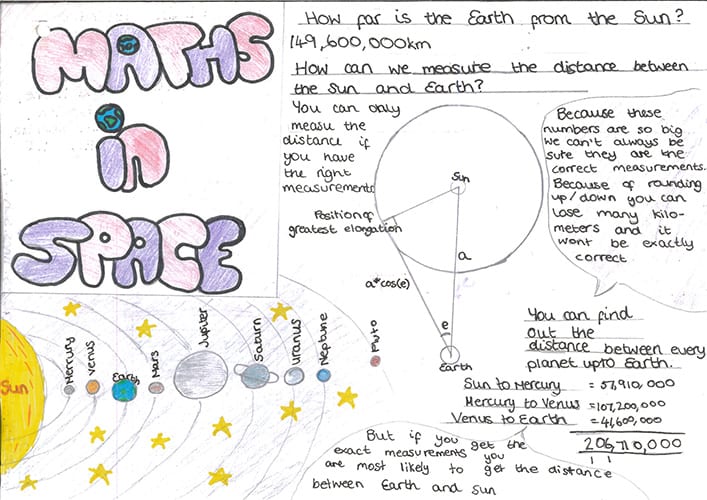 MATHS
in
SPACE
How far is the Earth from the Sun?
149,600,000km
How can we measure the distance between
the Sun and Earth?
You can only
measu the
distance if
you have
the right
measurements
Sun
Position of
greatest elongation
a
a*cos(e)
e
Earth
Because these
numbers are so big
we can't always be
sure they are the
correct measurements.
Because of rounding
up/down you can
lose many kilo-
meters and it
wont be exactly
correct
Sun
Mercury
Venus
Earth
Mars
Jupiter
Saturn
Uranus
Neptune
Pluto
You can find
out the
distance between every
planet upto Earth.
Sun to Mercury = 57,910,000
Mercury to Venus = 107,200,000
Venus to Earth = 41,600,000
206,710,000
1 1
But if you get the
exact measurements you
are most likely to get the distance
between Earth and Sun